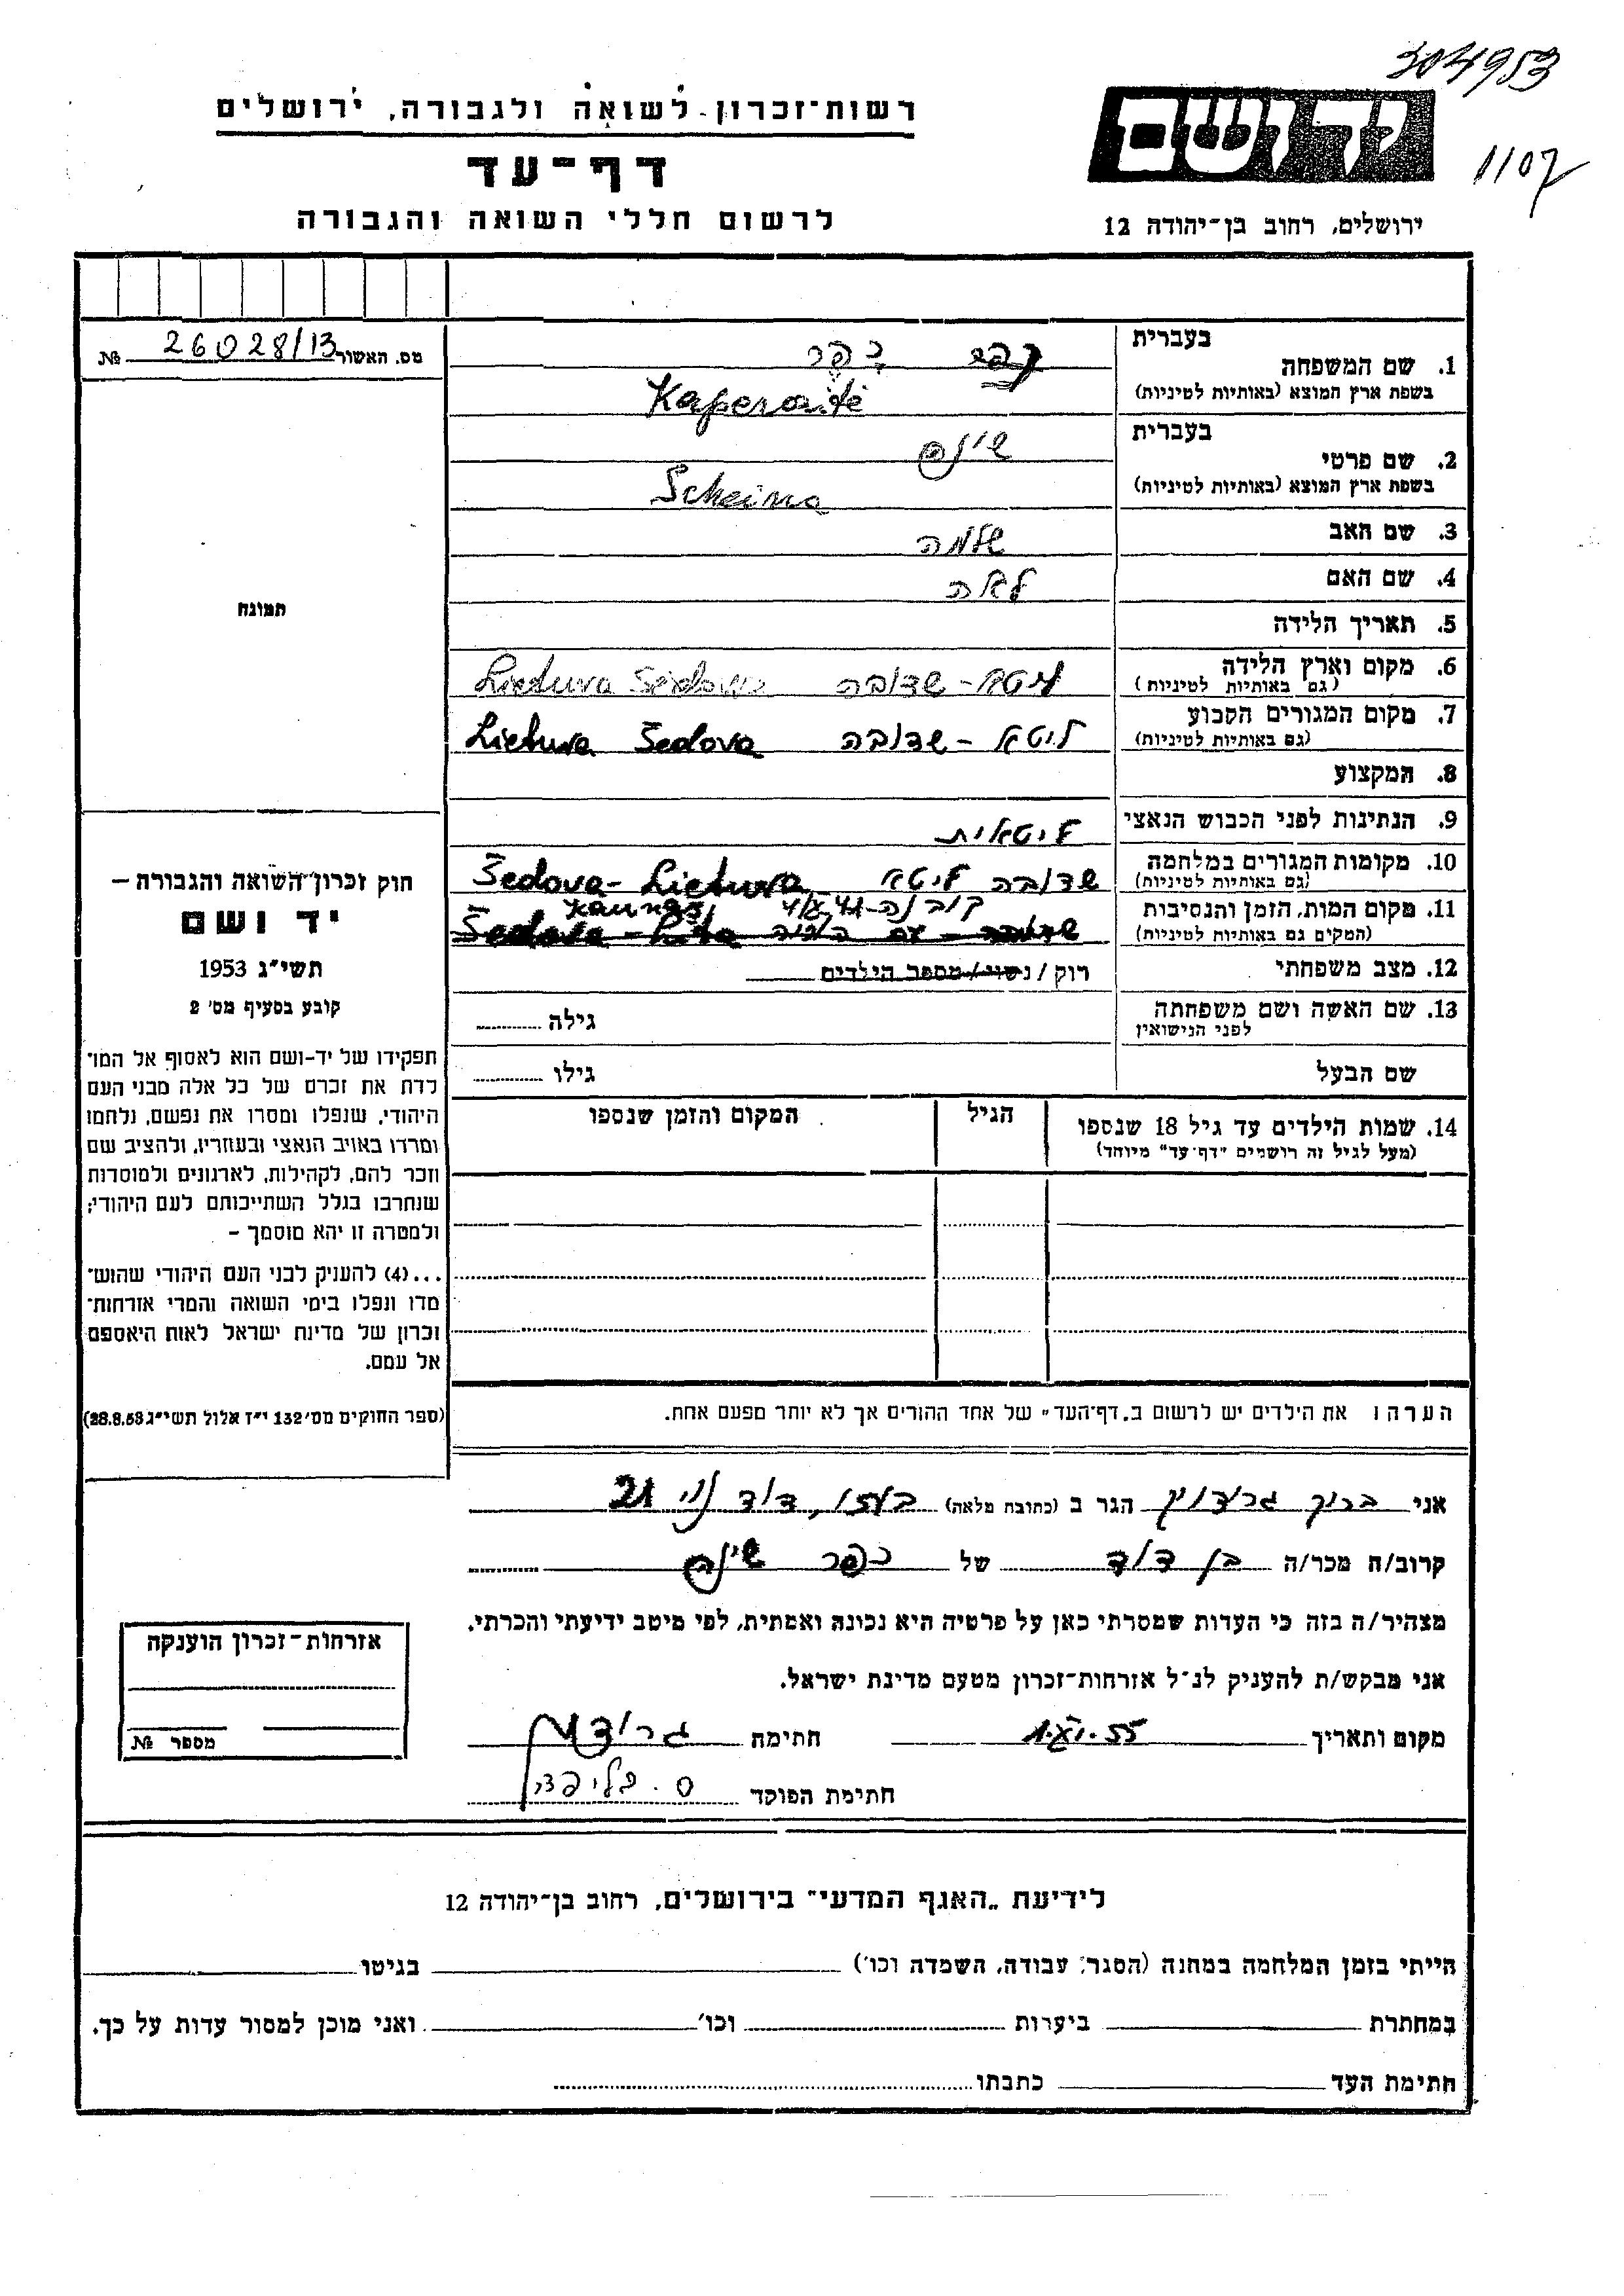 304953
רשות־זכרון לשואה ולגבורה, ירושלים
יד ושם
1107
דף־עד
לרשום חללי השואה והגבורה
ירושלים, רחוב בן־יהודה 12
מס. האשור 26028/13 №
בעברית
1. שם המשפחה כפר
בשפת ארץ המוצא (באותיות לטיניות) Kaperaitė
בעברית
2. שם פרטי שינה
בשפת ארץ המוצא (באותיות לטיניות) Scheina
3. שם האב שלמה
4. שם האם לאה
תמונה
5. תאריך הלידה
6. מקום וארץ הלידה ליטא - שדובה Lietuva Šedova
(גם באותיות לטיניות)
7. מקום המגורים הקבוע ליטא - שדובה Lietuva Šedova
(גם באותיות לטיניות)
8. המקצוע
9. הנתינות לפני הכבוש הנאצי ליטאית
10. מקומות המגורים במלחמה שדובה ליטא Šedova - Lietuva
(גם באותיות לטיניות)
11. מקום המות, הזמן והנסיבות קובנה - Kaunas
(המקום גם באותיות לטיניות)
12. מצב משפחתי רוק / נשוי / מספר הילדים
13. שם האשה ושם משפחתה גילה
לפני הנישואין
שם הבעל גילו
14. שמות הילדים עד גיל 18 שנספו הגיל המקום והזמן שנספו
(מעל לגיל זה רושמים "דף־עד" מיוחד)
חוק זכרון השואה והגבורה —
יד ושם
תשי״ג 1953
קובע בסעיף מס׳ 2
תפקידו של יד-ושם הוא לאסוף אל המו־
לדת את זכרם של כל אלה מבני העם
היהודי, שנפלו ומסרו את נפשם, נלחמו
ומרדו באויב הנאצי ובעוזריו, ולהציב שם
וזכר להם, לקהילות, לארגונים ולמוסדות
שנחרבו בגלל השתייכותם לעם היהודי;
ולמטרה זו יהא מוסמך –
...(4) להעניק לבני העם היהודי שהוש־
מדו ונפלו בימי השואה והמרי אזרחות־
זכרון של מדינת ישראל לאות היאספם
אל עמם.
(ספר החוקים מס׳ 132 י״ז אלול תשי״ג 28.8.53)
הערה: את הילדים יש לרשום ב„דף־העד״ של אחד ההורים אך לא יותר מפעם אחת.
אני ברוך הגר ב (כתובת מלאה) 21
קרוב/ה מכר/ה בן דוד של כפר שינה
מצהיר/ה בזה כי העדות שמסרתי כאן על פרטיה היא נכונה ואמתית, לפי מיטב ידיעתי והכרתי.
אני מבקש/ת להעניק לנ״ל אזרחות־זכרון מטעם מדינת ישראל.
מקום ותאריך חתימה
חתימת הפוקד
אזרחות־זכרון הוענקה
מספר №
לידיעת „האגף המדעי״ בירושלים, רחוב בן־יהודה 12
הייתי בזמן המלחמה במחנה (הסגר, עבודה, השמדה וכו׳) בגיטו
במחתרת ביערות וכו׳ ואני מוכן למסור עדות על כך.
חתימת העד כתבתו